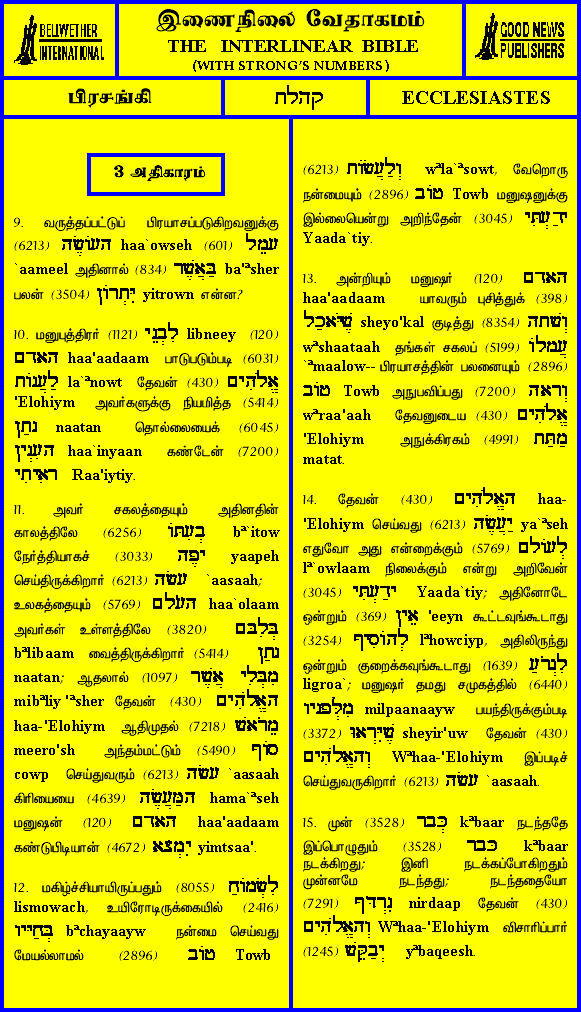 BELLWETHER
INTERNATIONAL
இணைநிலை வேதாகமம்
THE INTERLINEAR BIBLE
(WITH STRONG'S NUMBERS)
GOOD NEWS
PUBLISHERS
பிரசங்கி
קהלת
ECCLESIASTES
3 அதிகாரம்
9. வருத்தப்பட்டுப் பிரயாசப்படுகிறவனுக்கு
(6213) הָעוֹשֶׂה haa`owseh (601) עָמֵל
`aameel அதினால் (834) בַּאֲשֶׁר ba'ªsher
பலன் (3504) יִּתְרוֹן yitrown என்ன?
10. மனுபுத்திரர் (1121) לִבְנֵי libneey (120)
האדם haa'aadaam பாடுபடும்படி (6031)
לַעֲנוֹת la`ªnowt தேவன் (430) אֱלֹהִים
'Elohiym அவர்களுக்கு நியமித்த (5414)
נָתַן naatan தொல்லையைக் (6045)
הָעִנְיָן haa`inyaan கண்டேன் (7200)
ראיתי Raa'iytiy.
11. அவர் சகலத்தையும் அதினதின்
காலத்திலே (6256) בְעִתּוֹ bª`itow
நேர்த்தியாகச் (3033) יפה yaapeh
செய்திருக்கிறார் (6213) עשׂה `aasaah;
உலகத்தையும் (5769) העלם haa`olaam
அவர்கள் உள்ளத்திலே (3820) בְּלִבָּם
bªlibaam வைத்திருக்கிறார் (5414) נתן
naatan; ஆதலால் (1097) מִבְּלִי אֲשֶׁר
mibªliy 'ªsher தேவன் (430) הָאֱלֹהִים
haa-'Elohiym ஆதிமுதல் (7218) מֵרֹאשׁ
meero'sh அந்தம்மட்டும் (5490) סוֹף
cowp செய்துவரும் (6213) עשׂה `aasaah
கிரியையை (4639) הַמַּעֲשֶׂה hama`ªseh
மனுஷன் (120) האדם haa'aadaam
கண்டுபிடியான் (4672) יִמְצא yimtsaa'.
12. மகிழ்ச்சியாயிருப்பதும் (8055) לִשְׂמוֹחַ
lismowach, உயிரோடிருக்கையில் (2416)
בְּחַיּיו bªchayaayw நன்மை செய்வது
மேயல்லாமல் (2896) טוֹב Towb
(6213) וְלַעֲשׂוֹת wªla`ªsowt, வேறொரு
நன்மையும் (2896) טוֹב Towb மனுஷனுக்கு
இல்லையென்று அறிந்தேன் (3045) ידַעְתִּי
Yaada`tiy.
13. அன்றியும் மனுஷர் (120) האדם
haa'aadaam யாவரும் புசித்துக் (398)
שֶׁיֹּאכַל sheyo'kal குடித்து (8354) וְשׁתה
wªshaataah தங்கள் சகலப் (5199) עֲמלוֹ
`ªmaalow-- பிரயாசத்தின் பலனையும் (2896)
טוֹב Towb அநுபவிப்பது (7200) וְראה
wªraa'aah தேவனுடைய (430) אֱלֹהִים
'Elohiym அநுக்கிரகம் (4991) מַתַּת
matat.
14. தேவன் (430) האֱלֹהִים haa-
'Elohiym செய்வது (6213) יַעֲשֶׂה ya`ªseh
எதுவோ அது என்றைக்கும் (5769) לְעוֹלם
lª`owlaam நிலைக்கும் என்று அறிவேன்
(3045) ידַעְתִּי Yaada`tiy; அதினோடே
ஒன்றும் (369) אֵין 'eeyn கூட்டவுங்கூடாது
(3254) לְהוֹסִיף lªhowciyp, அதிலிருந்து
ஒன்றும் குறைக்கவுங்கூடாது (1639) לִגְרֹעַ
ligroa`; மனுஷர் தமது சமுகத்தில் (6440)
מִלְּפניו milpaanaayw பயந்திருக்கும்படி
(3372) שֶׁיִּרְאוּ sheyir'uw தேவன் (430)
וְהאֱלֹהִים Wªhaa-'Elohiym இப்படிச்
செய்துவருகிறார் (6213) עשׂה `aasaah.
15. முன் (3528) כְּבר kªbaar நடந்ததே
இப்பொழுதும் (3528) כבר kªbaar
நடக்கிறது; இனி நடக்கப்போகிறதும்
முன்னமே நடந்தது; நடந்ததையோ
(7291) נִרְדּף nirdaap தேவன் (430)
וְהאֱלֹהִים Wªhaa-'Elohiym விசாரிப்பார்
(1245) יְבַקֵּשׁ yªbaqeesh.